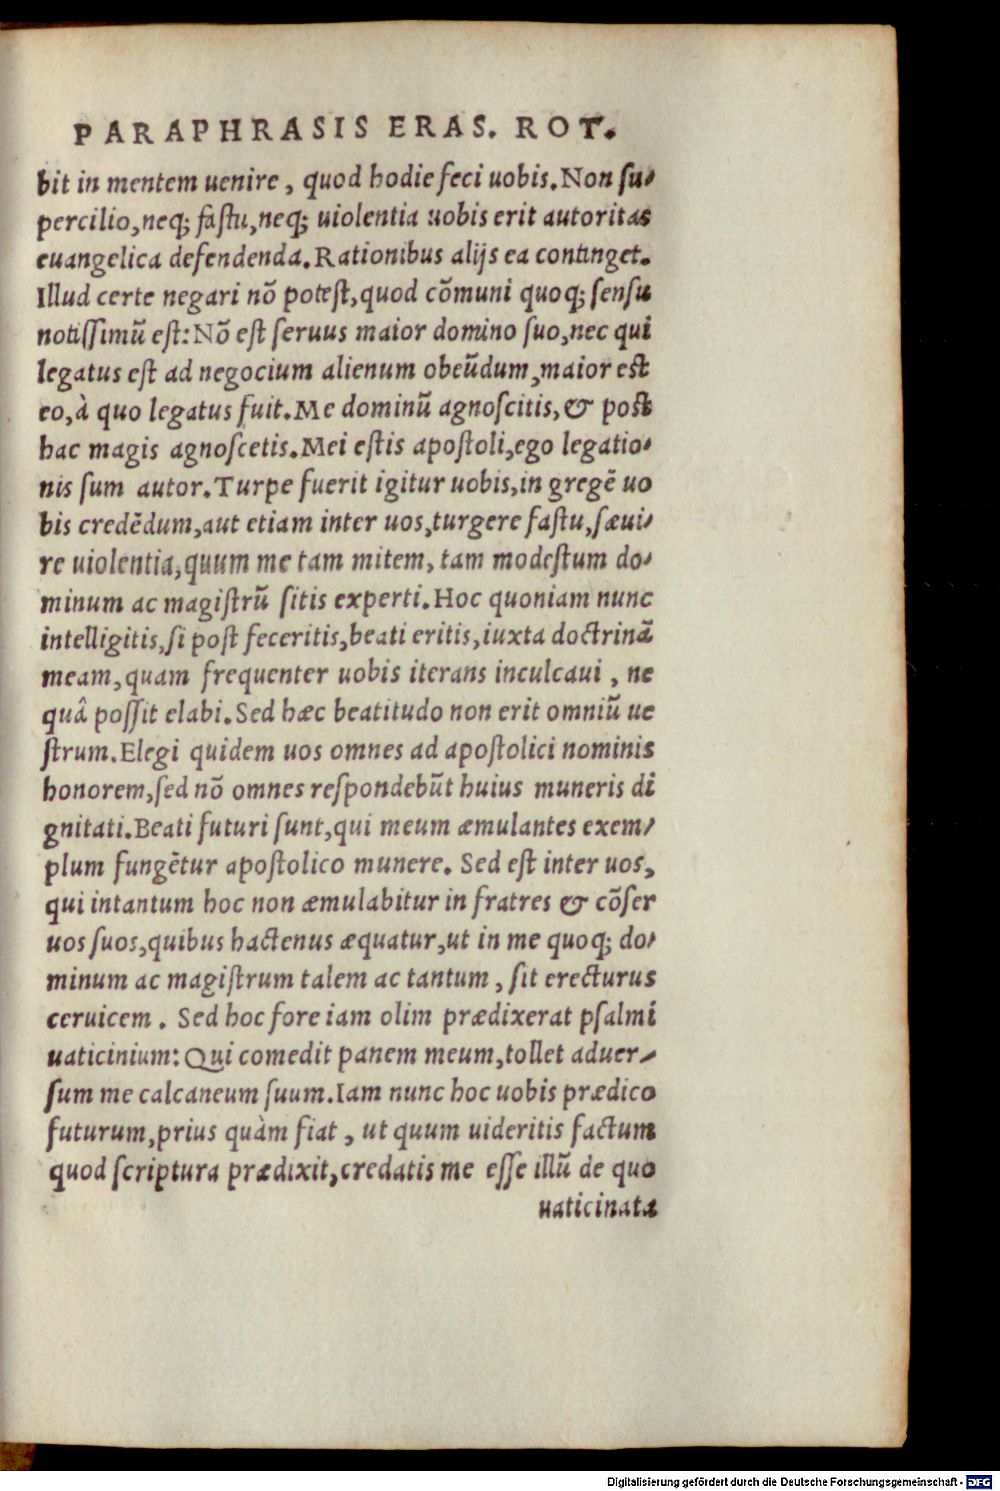 PARAPHRASIS ERAS. ROT.
bit in mentem uenire, quod hodie feci uobis. Non su-
percilio, neq; fastu, neq; uiolentia uobis erit autoritas
euangelica defendenda. Rationibus alijs ea continget.
Illud certe negari nō potest, quod cōmuni quoq; sensu
notissimū est: Nō est seruus maior domino suo, nec qui
legatus est ad negocium alienum obeūdum, maior est
eo, à quo legatus fuit. Me dominū agnoscitis, & post
hac magis agnoscetis. Mei estis apostoli, ego legatio-
nis sum autor. Turpe fuerit igitur uobis, in gregē uo
bis credēdum, aut etiam inter uos, turgere fastu, sæui-
re uiolentia, quum me tam mitem, tam modestum do-
minum ac magistrū sitis experti. Hoc quoniam nunc
intelligitis, si post feceritis, beati eritis, iuxta doctrinā
meam, quam frequenter uobis iterans inculcaui, ne
quâ possit elabi. Sed hæc beatitudo non erit omniū ue
strum. Elegi quidem uos omnes ad apostolici nominis
honorem, sed nō omnes respondebūt huius muneris di
gnitati. Beati futuri sunt, qui meum æmulantes exem-
plum fungētur apostolico munere. Sed est inter uos,
qui intantum hoc non æmulabitur in fratres & cōser
uos suos, quibus hactenus æquatur, ut in me quoq; do-
minum ac magistrum talem ac tantum, sit erecturus
ceruicem. Sed hoc fore iam olim prædixerat psalmi
uaticinium: Qui comedit panem meum, tollet aduer-
sum me calcaneum suum. Iam nunc hoc uobis prædico
futurum, prius quàm fiat, ut quum uideritis factum
quod scriptura prædixit, credatis me esse illū de quo
uaticinata
Digitalisierung gefördert durch die Deutsche Forschungsgemeinschaft - DFG